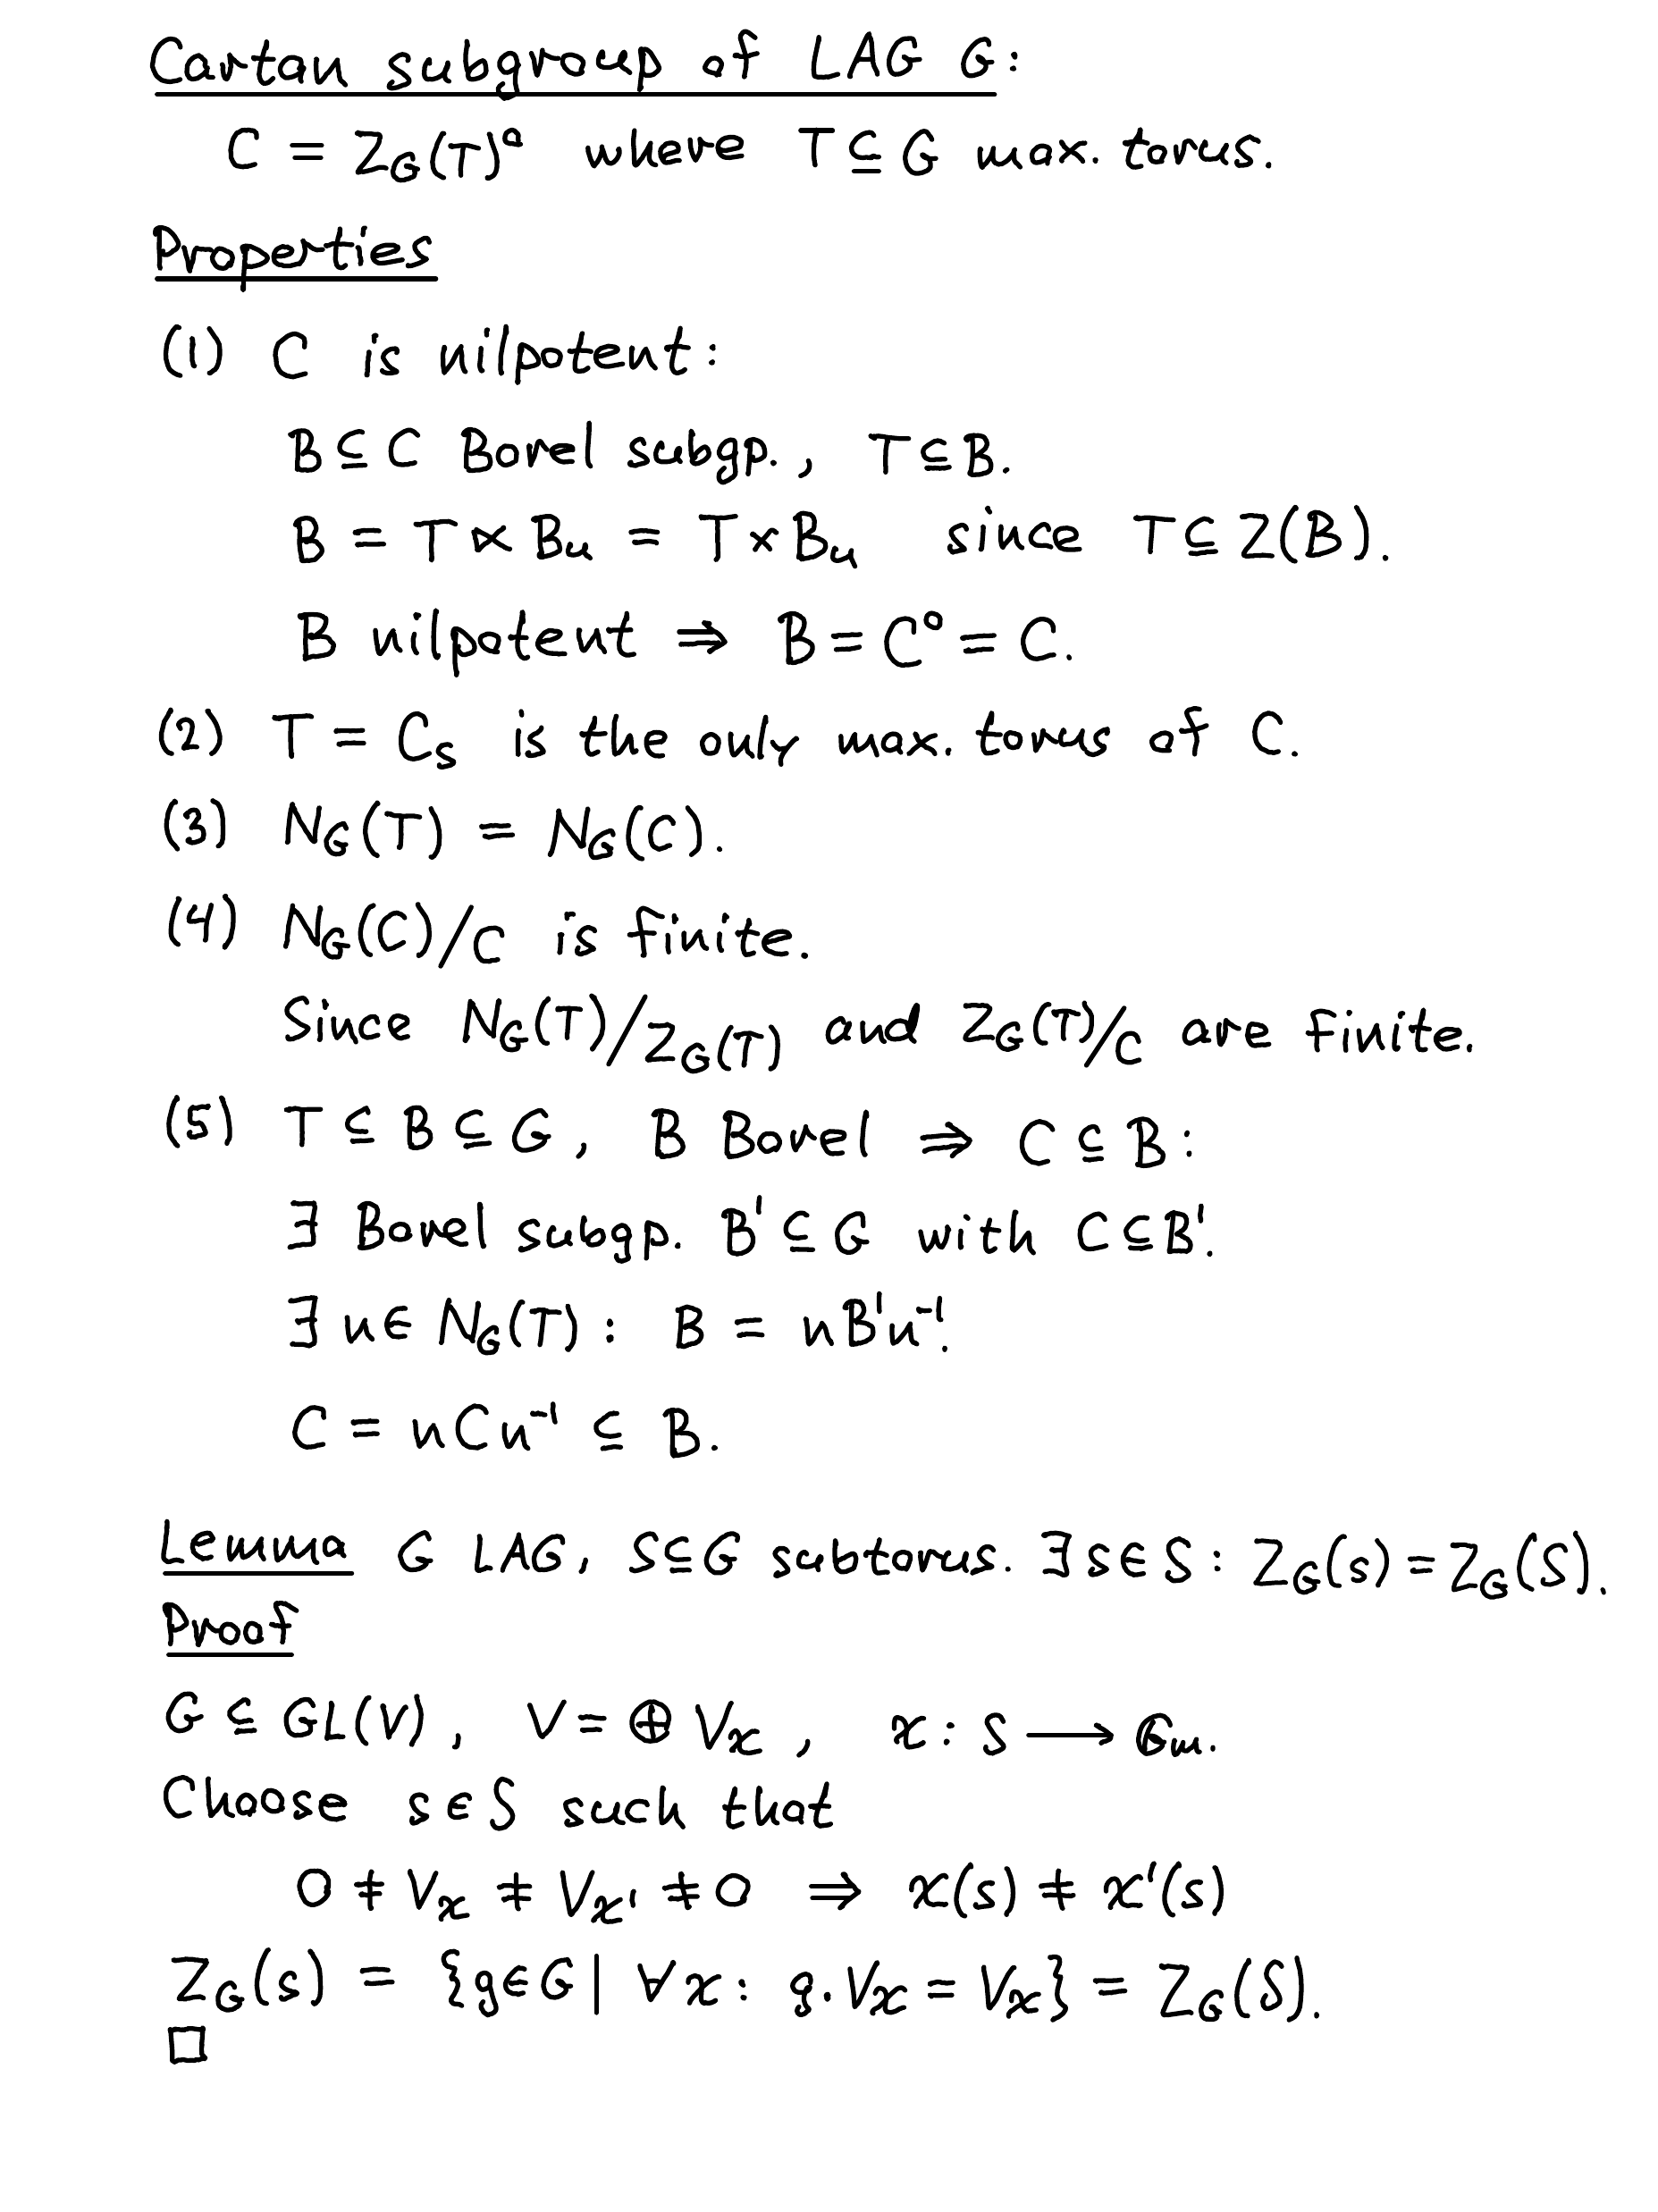 Cartan subgroup of LAG G:
C = Z_G(T)° where T ⊆ G max. torus.
Properties
(1) C is nilpotent:
B ⊆ C Borel subgp., T ⊆ B.
B = T ⋉ B_u = T × B_u since T ⊆ Z(B).
B nilpotent ⇒ B = C° = C.
(2) T = C_s is the only max. torus of C.
(3) N_G(T) = N_G(C).
(4) N_G(C)/C is finite.
Since N_G(T)/Z_G(T) and Z_G(T)/C are finite.
(5) T ⊆ B ⊆ G, B Borel ⇒ C ⊆ B:
∃ Borel subgp. B' ⊆ G with C ⊆ B'.
∃ n ∈ N_G(T): B = nB'n⁻¹.
C = nCn⁻¹ ⊆ B.
Lemma G LAG, S ⊆ G subtorus. ∃ s ∈ S: Z_G(s) = Z_G(S).
Proof
G ⊆ GL(V), V = ⊕ V_χ, χ: S ⟶ 𝔾_m.
Choose s ∈ S such that
0 ≠ V_χ ≠ V_χ' ≠ 0 ⇒ χ(s) ≠ χ'(s)
Z_G(s) = {g ∈ G | ∀χ: g.V_χ = V_χ} = Z_G(S).
□